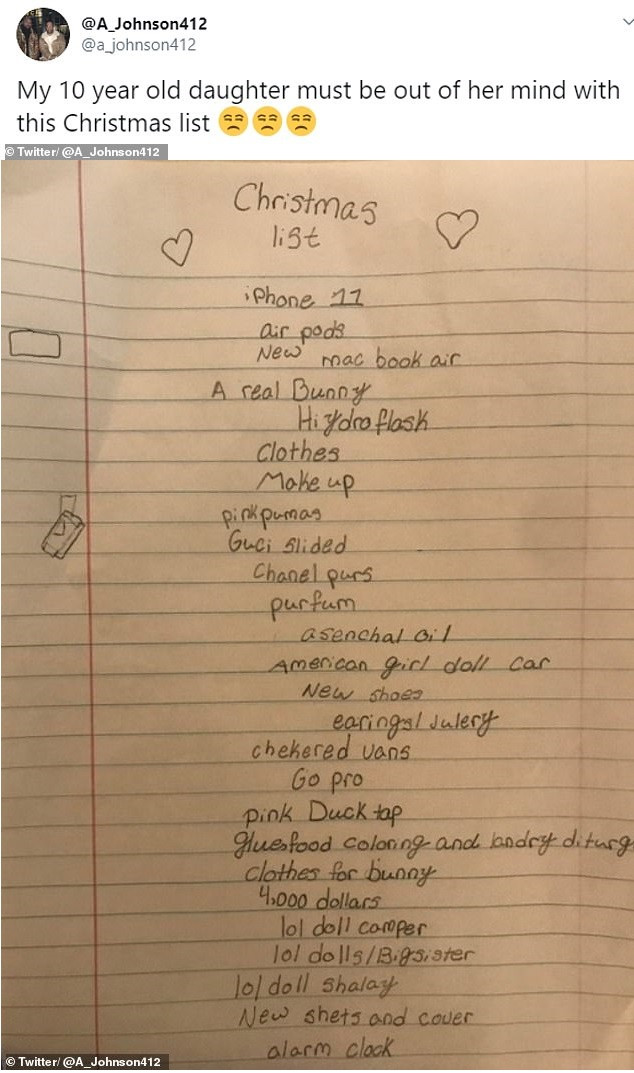 @A_Johnson412
@a_johnson412
My 10 year old daughter must be out of her mind with
this Christmas list 😒😒😒
© Twitter/ @A_Johnson412
Christmas
list
iPhone 11
air pods
New mac book air
A real Bunny
Hiydroflask
Clothes
Make up
pink pumas
Guci slided
Chanel purs
purfum
asenchal oil
American girl doll car
New shoes
earings/ Julery
chekered vans
Go pro
pink Duck tap
glue food coloring and landry diturg
clothes for bunny
4,000 dollars
lol doll camper
lol dolls/Bigsister
lol doll shalay
New shets and cover
alarm clock
© Twitter/ @A_Johnson412